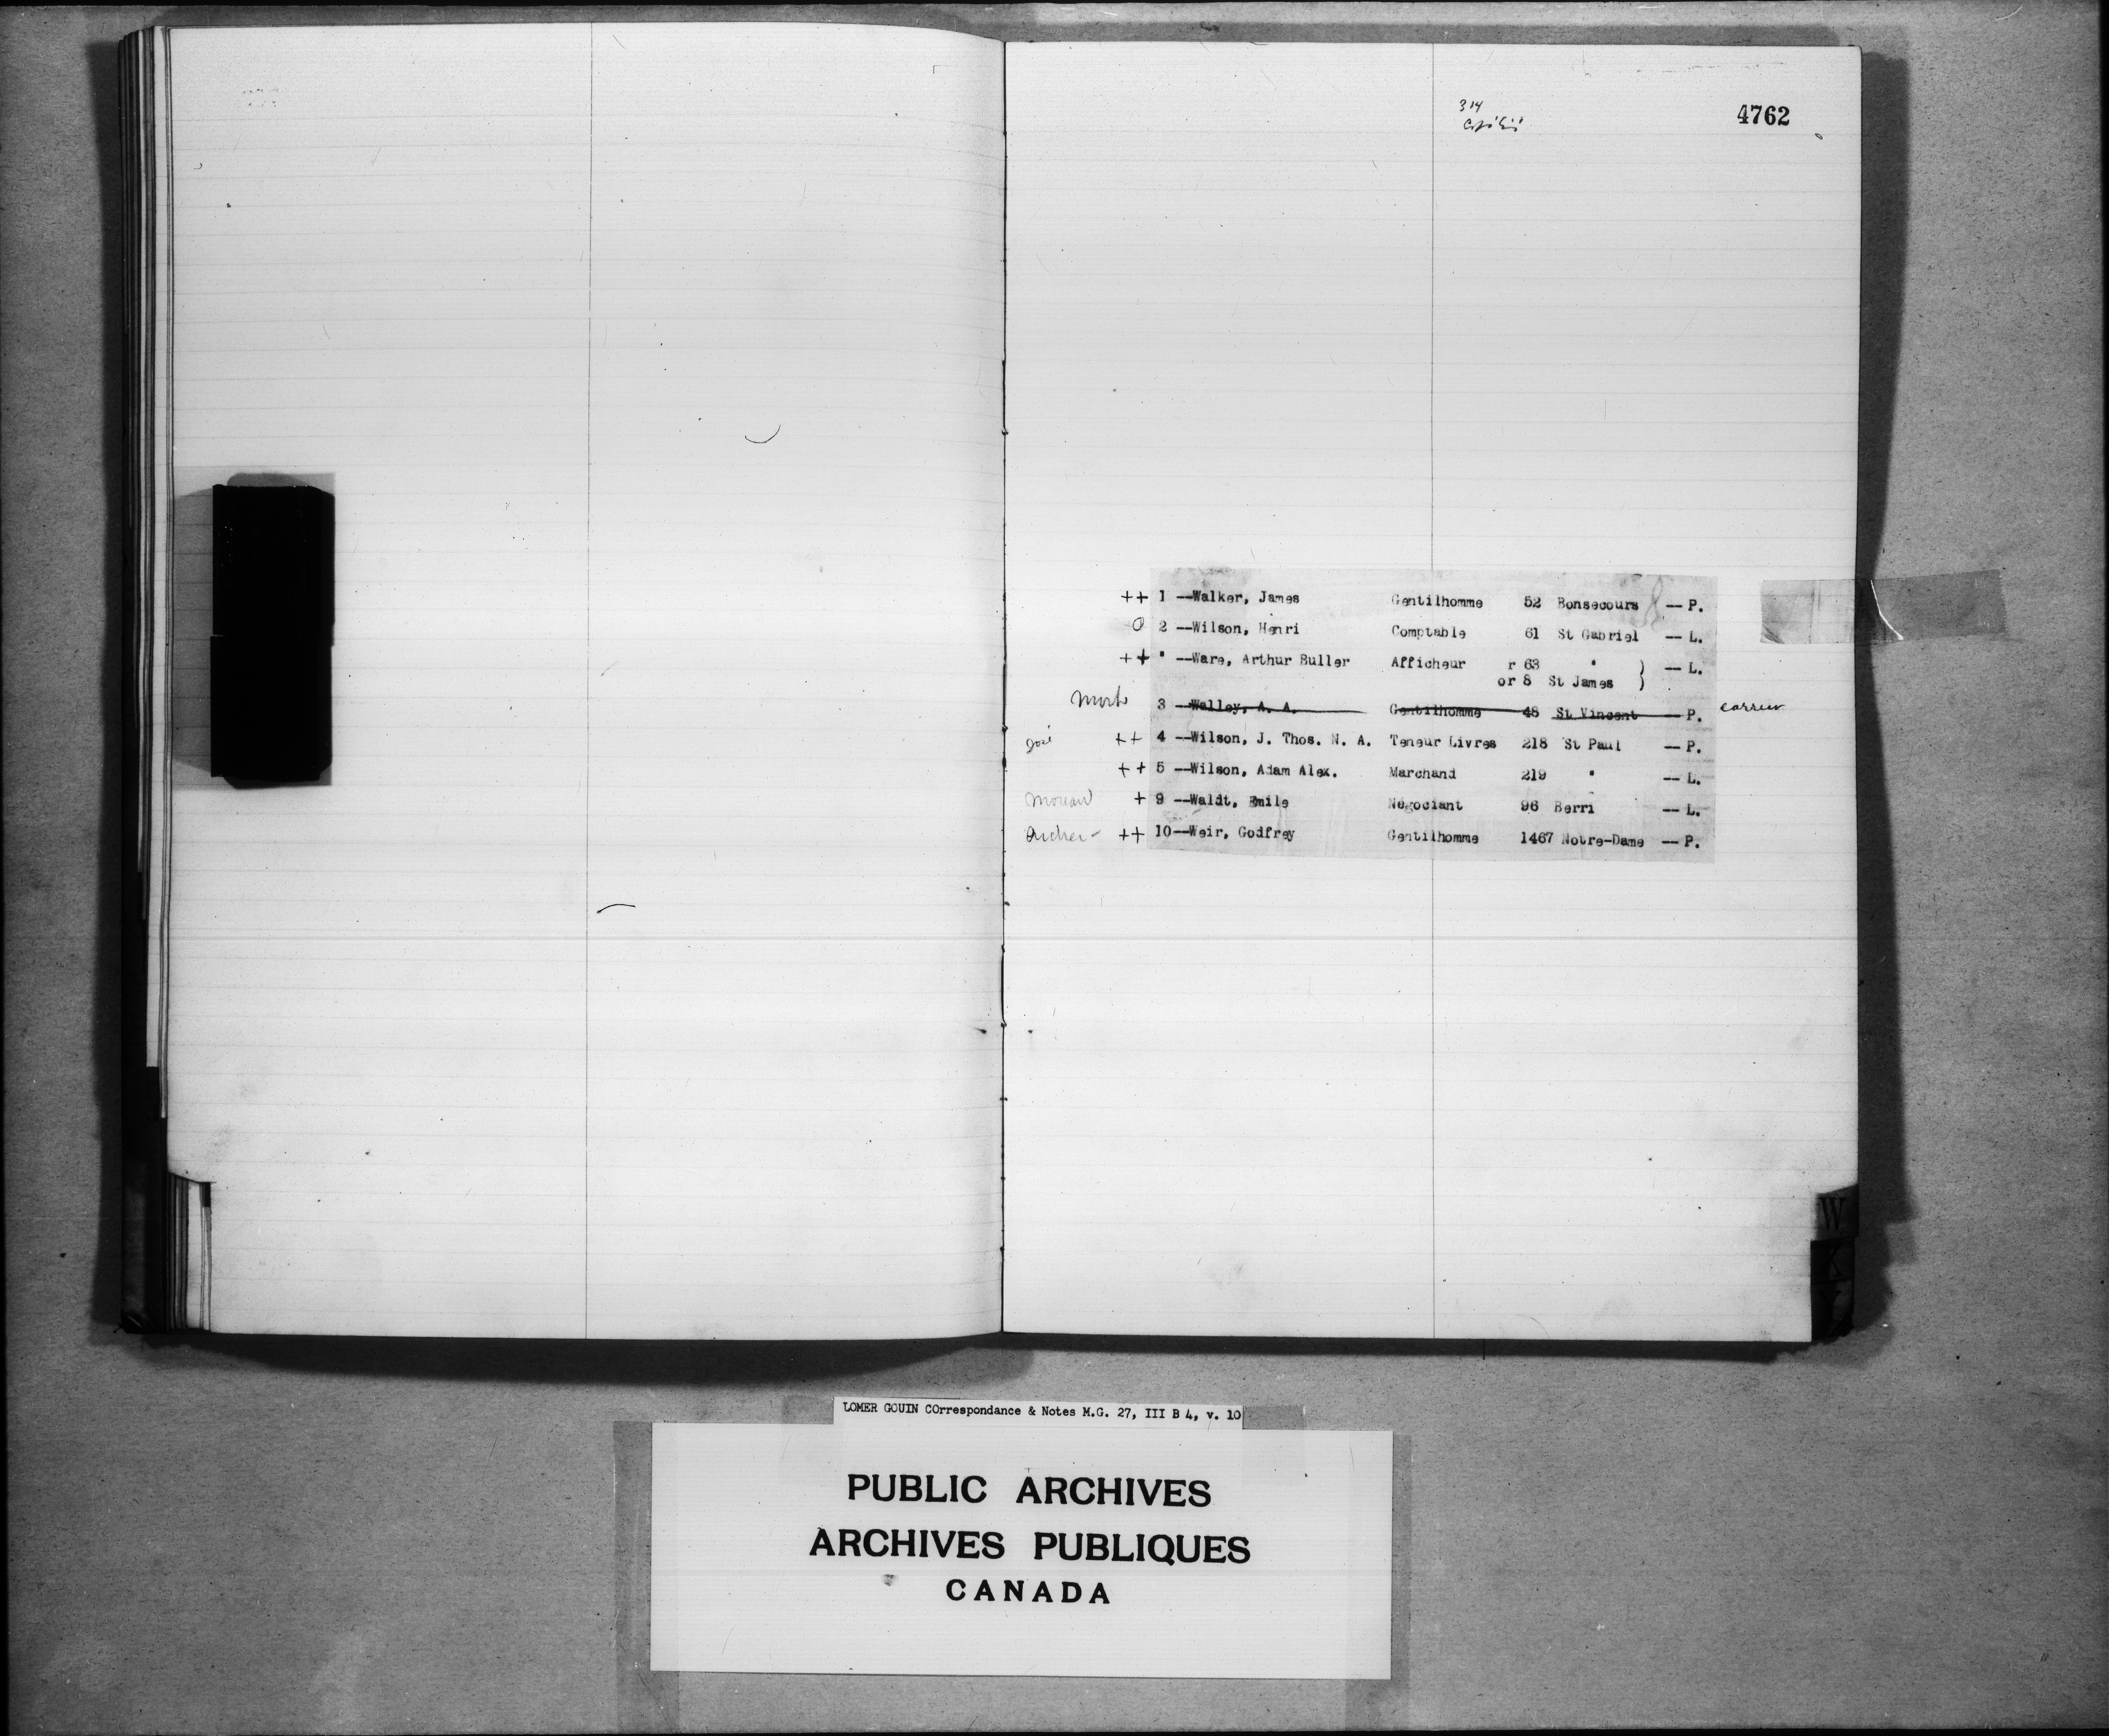 314
4762
++ 1 --Walker, James Gentilhomme 52 Bonsecours -- P.
O 2 --Wilson, Henri Comptable 61 St Gabriel -- L.
++ " --Ware, Arthur Buller Afficheur r 63 " ) -- L.
or 8 St James )
Mort 3 --Walley, A. A. Gentilhomme 48 St Vincent -- P.
++ 4 --Wilson, J. Thos. N. A. Teneur Livres 218 St Paul -- P.
++ 5 --Wilson, Adam Alex. Marchand 219 " -- L.
+ 9 --Waldt, Emile Négociant 96 Berri -- L.
Archer - ++ 10--Weir, Godfrey Gentilhomme 1467 Notre-Dame -- P.
W
X
Y
LOMER GOUIN COrrespondance & Notes M.G. 27, III B 4, v. 10
PUBLIC ARCHIVES
ARCHIVES PUBLIQUES
CANADA